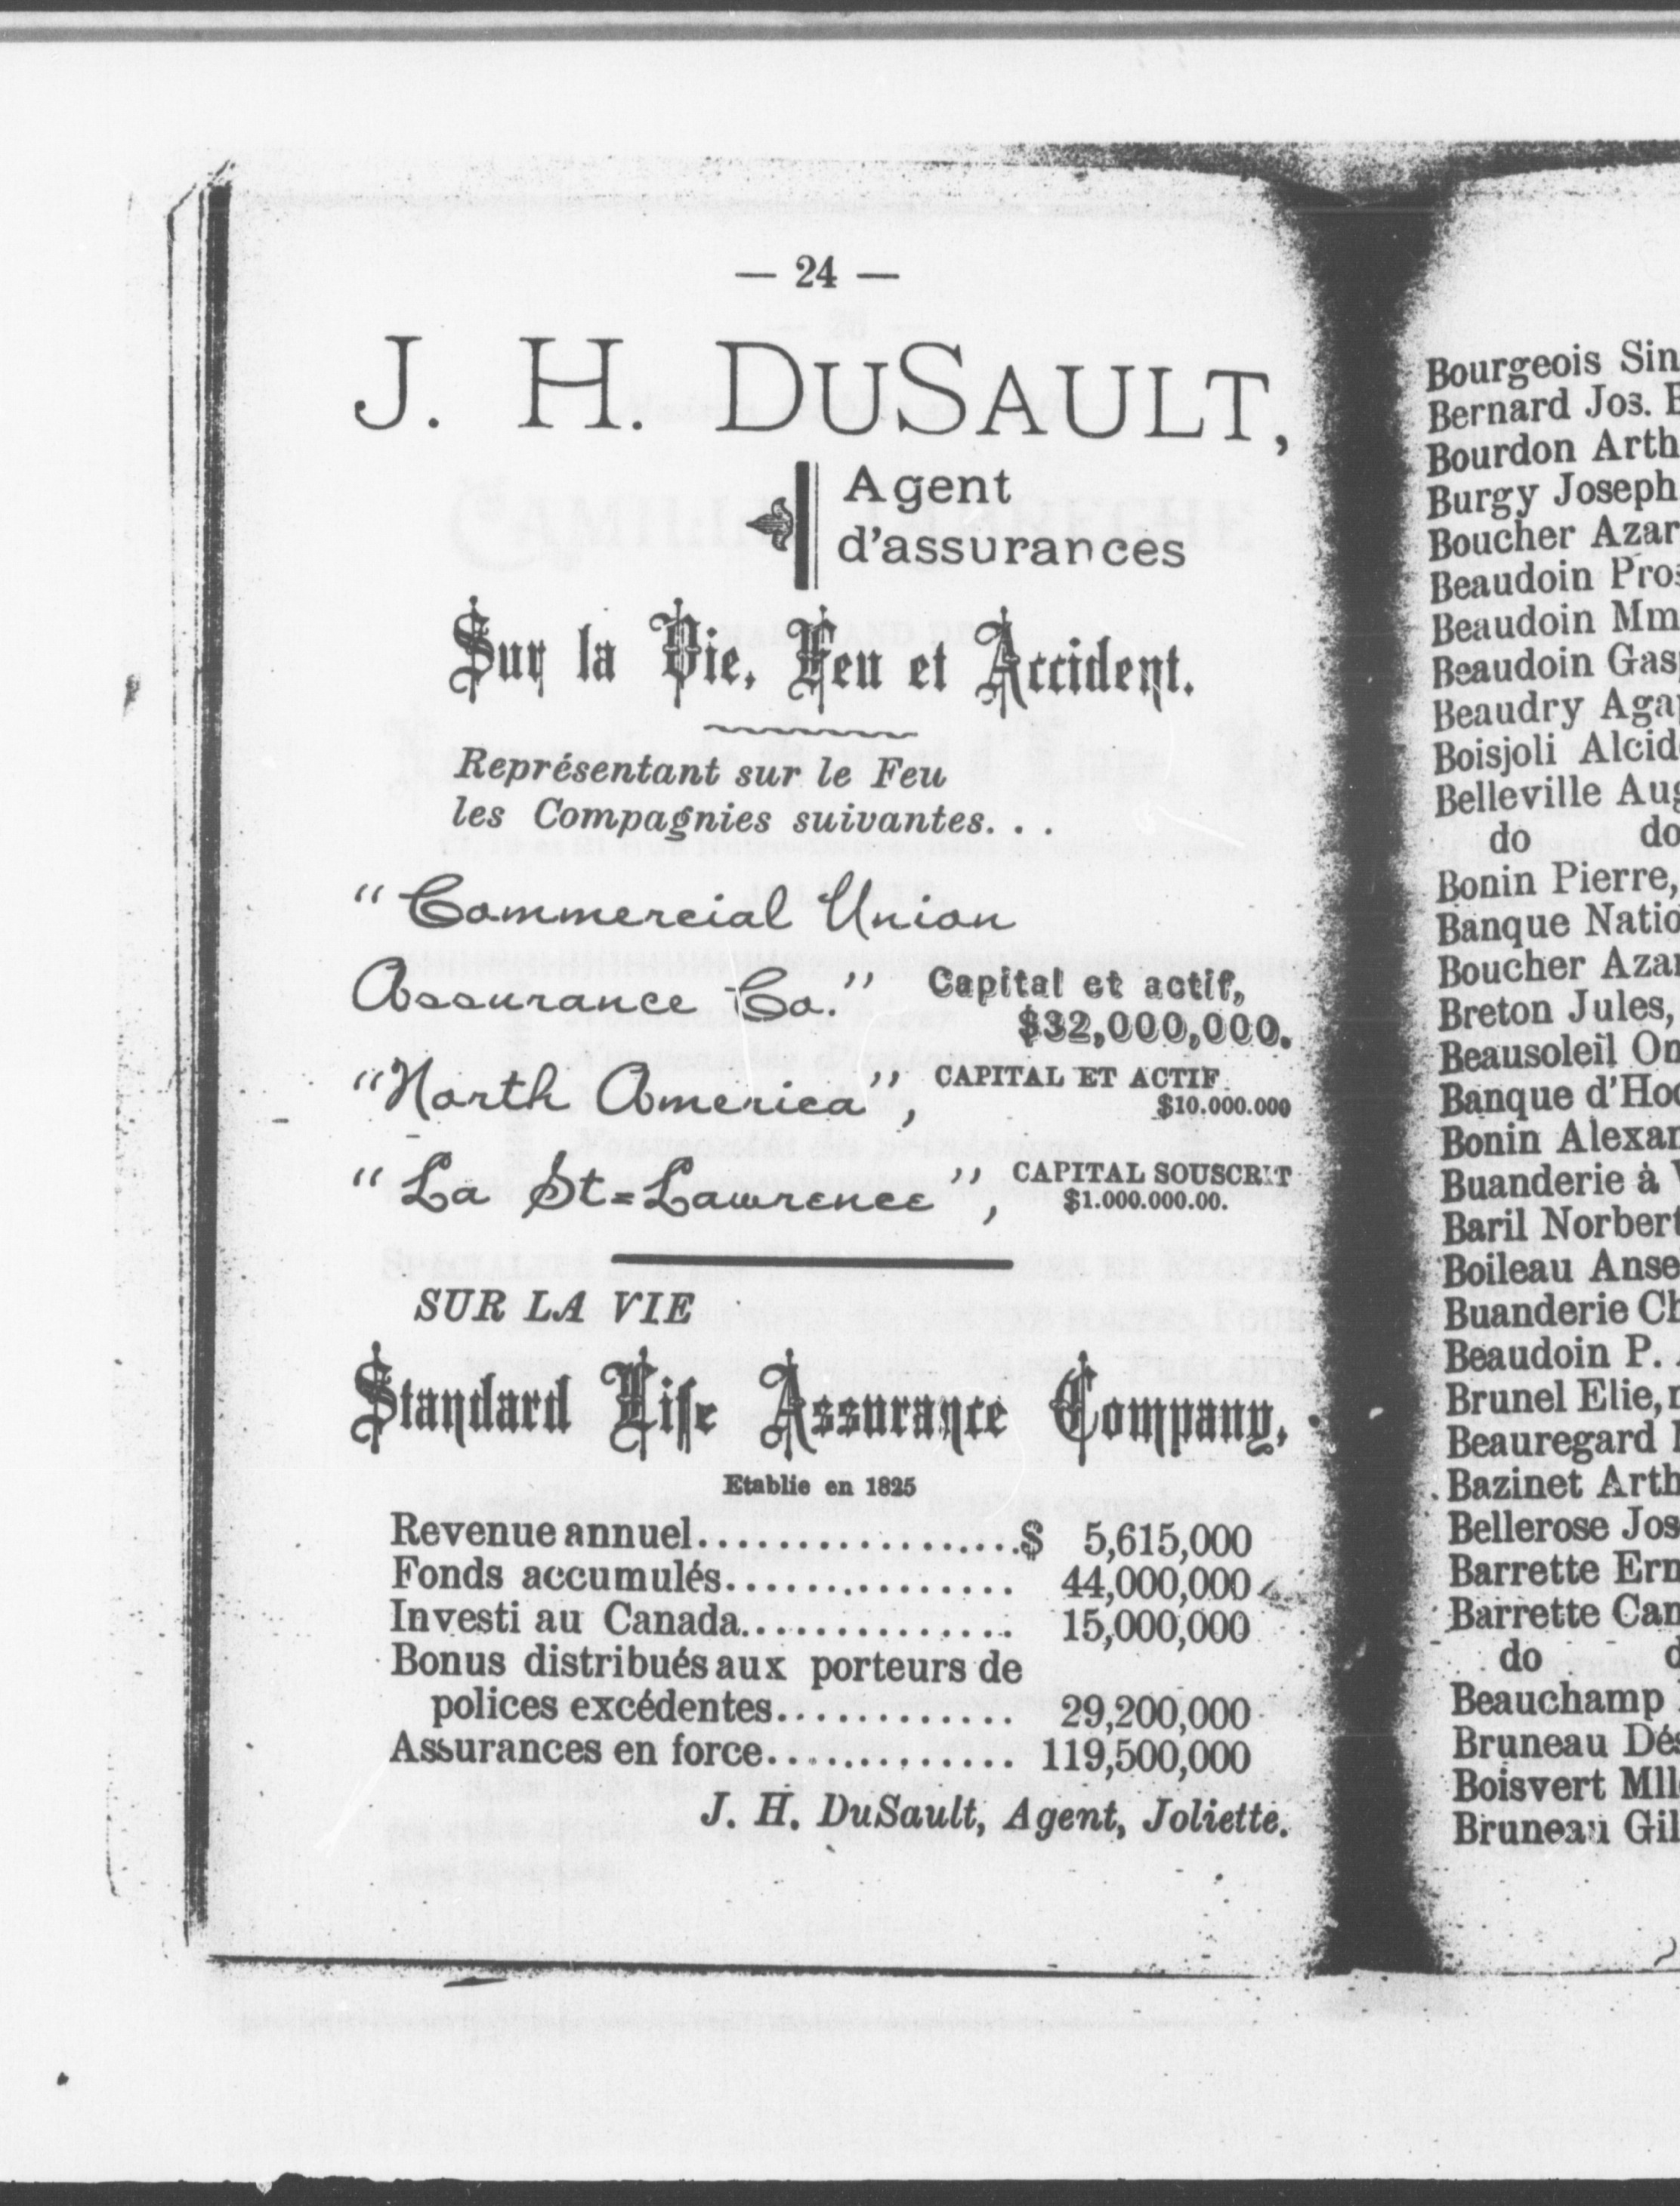 — 24 —
J. H. DuSault,
Agent
d'assurances
Sur la Vie, Feu et Accident.
Représentant sur le Feu
les Compagnies suivantes...
"Commercial Union
Assurance Co." Capital et actif,
$32,000,000.
"North America", CAPITAL ET ACTIF
$10.000.000
"La St=Lawrence", CAPITAL SOUSCRIT
$1.000.000.00.
SUR LA VIE
Standard Life Assurance Company,
Etablie en 1825
Revenue annuel..................$ 5,615,000
Fonds accumulés................ 44,000,000
Investi au Canada............... 15,000,000
Bonus distribués aux porteurs de
polices excédentes............. 29,200,000
Assurances en force.............. 119,500,000
J. H. DuSault, Agent, Joliette.
Bourgeois
Bernard Jos.
Bourdon
Burgy Joseph
Boucher
Beaudoin
Beaudoin
Beaudoin
Beaudry
Boisjoli
Belleville
do do
Bonin Pierre,
Banque
Boucher
Breton Jules,
Beausoleil
Banque
Bonin
Buanderie à
Baril
Boileau
Buanderie
Beaudoin P.
Brunel Elie,
Beauregard
Bazinet
Bellerose
Barrette
Barrette
do
Beauchamp
Bruneau
Boisvert
Bruneau